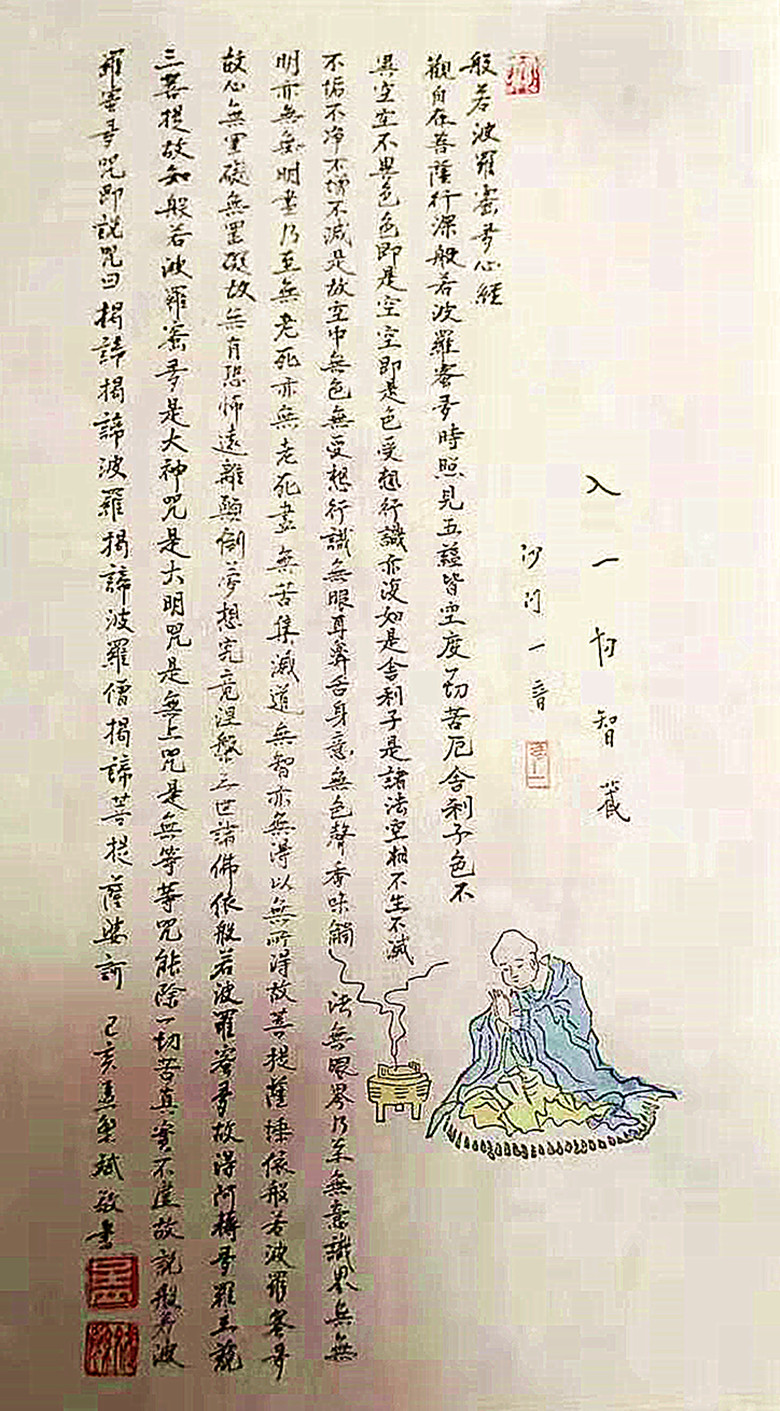 入一切智藏
沙門一音
般若波羅蜜多心經
觀自在菩薩行深般若波羅蜜多時照見五蘊皆空度一切苦厄舍利子色不
異空空不異色色即是空空即是色受想行識亦復如是舍利子是諸法空相不生不滅
不垢不净不增不減是故空中無色無受想行識無眼耳鼻舌身意無色聲香味觸法無眼界乃至無意識界無無
明亦無無明盡乃至無老死亦無老死盡無苦集滅道無智亦無得以無所得故菩提薩埵依般若波羅蜜多
故心無罣礙無罣礙故無有恐怖遠離顛倒夢想究竟涅槃三世諸佛依般若波羅蜜多故得阿耨多羅三藐
三菩提故知般若波羅蜜多是大神咒是大明咒是無上咒是無等等咒能除一切苦真實不虛故說般若波
羅蜜多咒即說咒曰揭諦揭諦波羅揭諦波羅僧揭諦菩提薩婆訶 己亥斌敬書